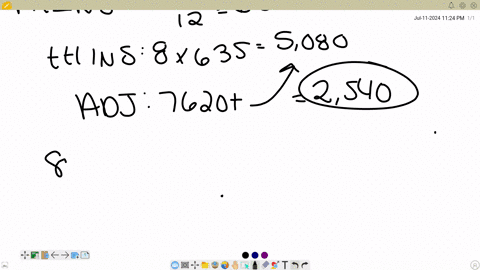 Jul-11-2024 11:24 PM 1/1
12
ttl INS: 8 x 635 = 5,080
ADJ: 7620+ = 2,540
8